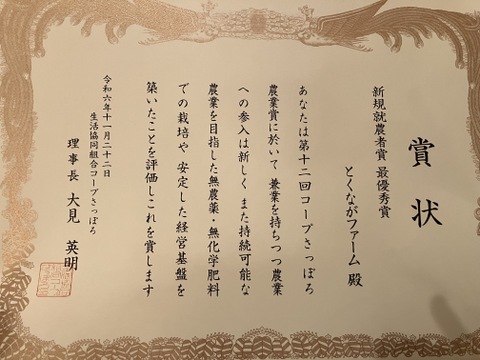 賞状
新規就農者賞 最優秀賞
とくながファーム 殿
あなたは第十二回コープさっぽろ
農業賞に於いて 兼業を持ちつつ農業
への参入は新しく また持続可能な
農業を目指した無農薬・無化学肥料
での栽培や 安定した経営基盤を
築いたことを評価しこれを賞します
令和六年十一月二十二日
生活協同組合コープさっぽろ
理事長 大見 英明